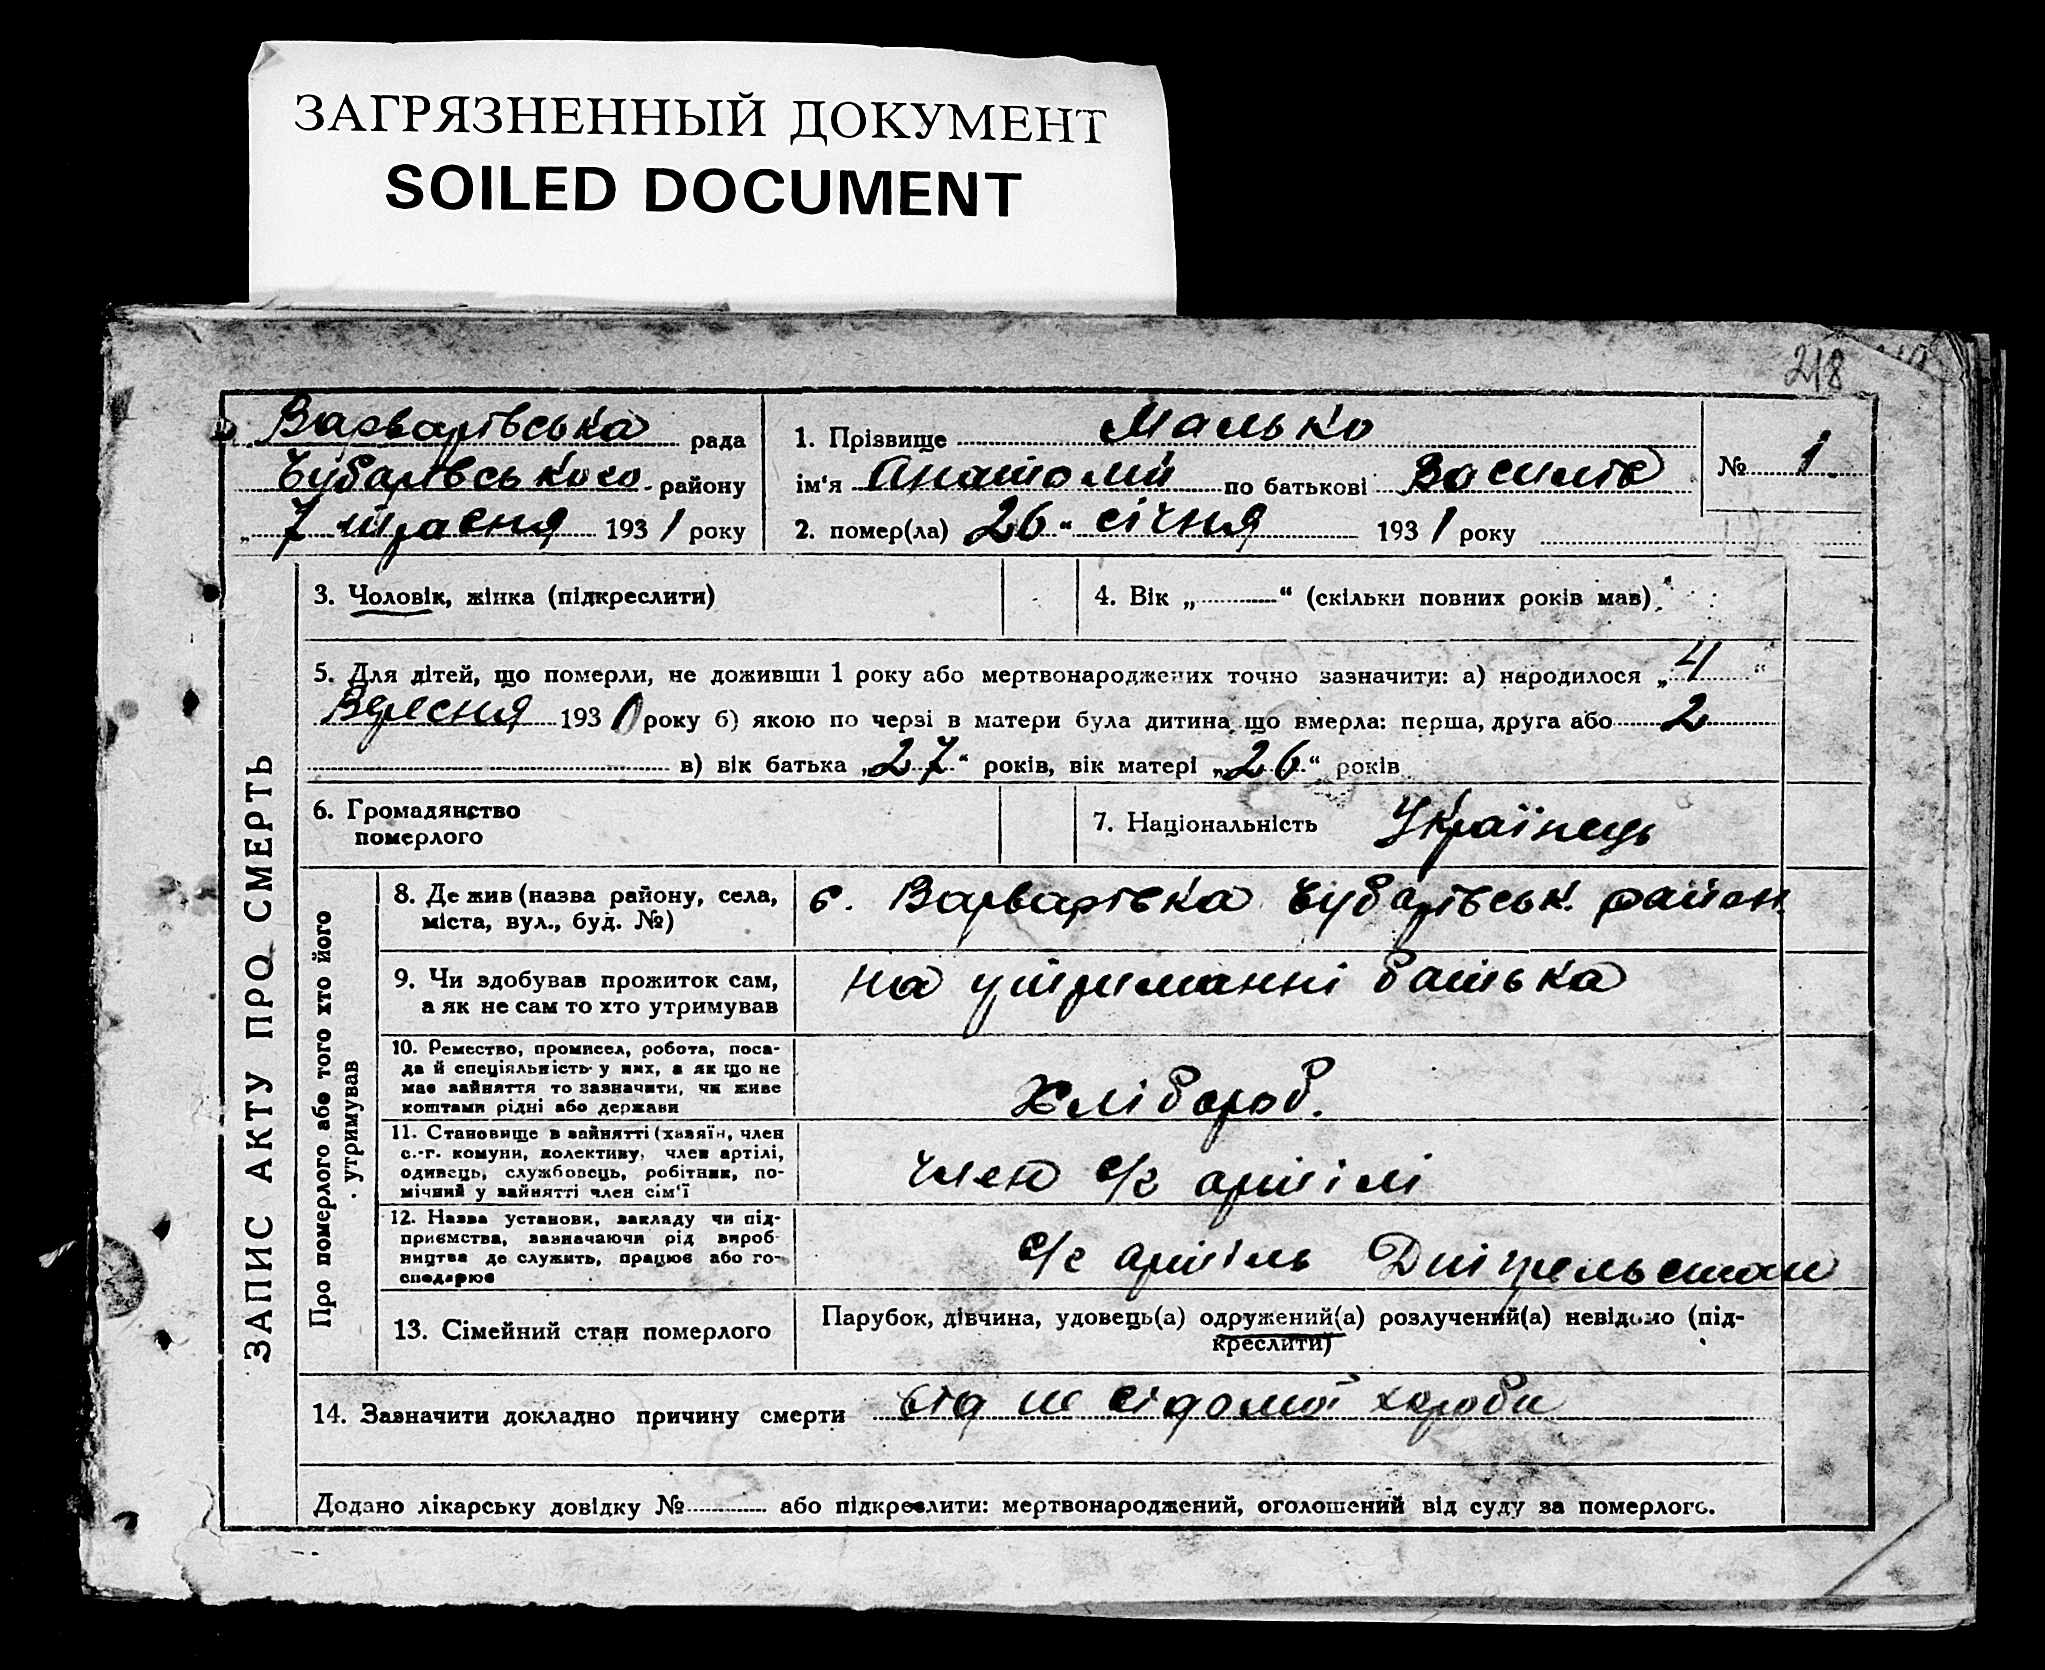 ЗАГРЯЗНЕННЫЙ ДОКУМЕНТ
SOILED DOCUMENT
218
Варварівська рада
Чубарівського району
„ 7 травня 1931 року
1. Прізвище Малько
ім'я Анатолій по батькові Василів
2. помер(ла) 26 " січня 1931 року
№ 1.
ЗАПИС АКТУ ПРО СМЕРТЬ
3. Чоловік, жінка (підкреслити)
4. Вік „ “ (скільки повних років мав)
5. Для дітей, що померли, не доживши 1 року або мертвонароджених точно зазначити: а) народилося „ 4 “
Вересня 1930 року б) якою по черзі в матери була дитина що вмерла: перша, друга або 2
в) вік батька „27“ років, вік матері „26“ років
6. Громадянство
померлого
7. Національність Українець
Про померлого або того хто його
утримував
8. Де жив (назва району, села,
міста, вул., буд. №)
с. Варварівка Чубарівськ. район.
9. Чи здобував прожиток сам,
а як не сам то хто утримував
на утриманні батька
10. Ремество, промисел, робота, поса-
да й спеціяльність у них, а як що не
має зайняття то зазначити, чи живе
коштами рідні або держави
Хлібороб.
11. Становище в зайнятті (хазяїн, член
с.-г. комуни, колективу, член артілі,
одивець, службовець, робітник, по-
мічний у зайнятті член сім'ї
член с/г артілі
12. Назва установи, закладу чи під-
приємства, зазначаючи рід вироб-
ництва де служить, працює або го-
сподарює
с/г артіль Дніпрельстан
13. Сімейний стан померлого
Парубок, дівчина, удовець(а) одружений(а) розлучений(а) невідомо (під-
креслити)
14. Зазначити докладно причину смерти від не відомої хороби
Додано лікарську довідку № або підкреслити: мертвонароджений, оголошений від суду за померлого.